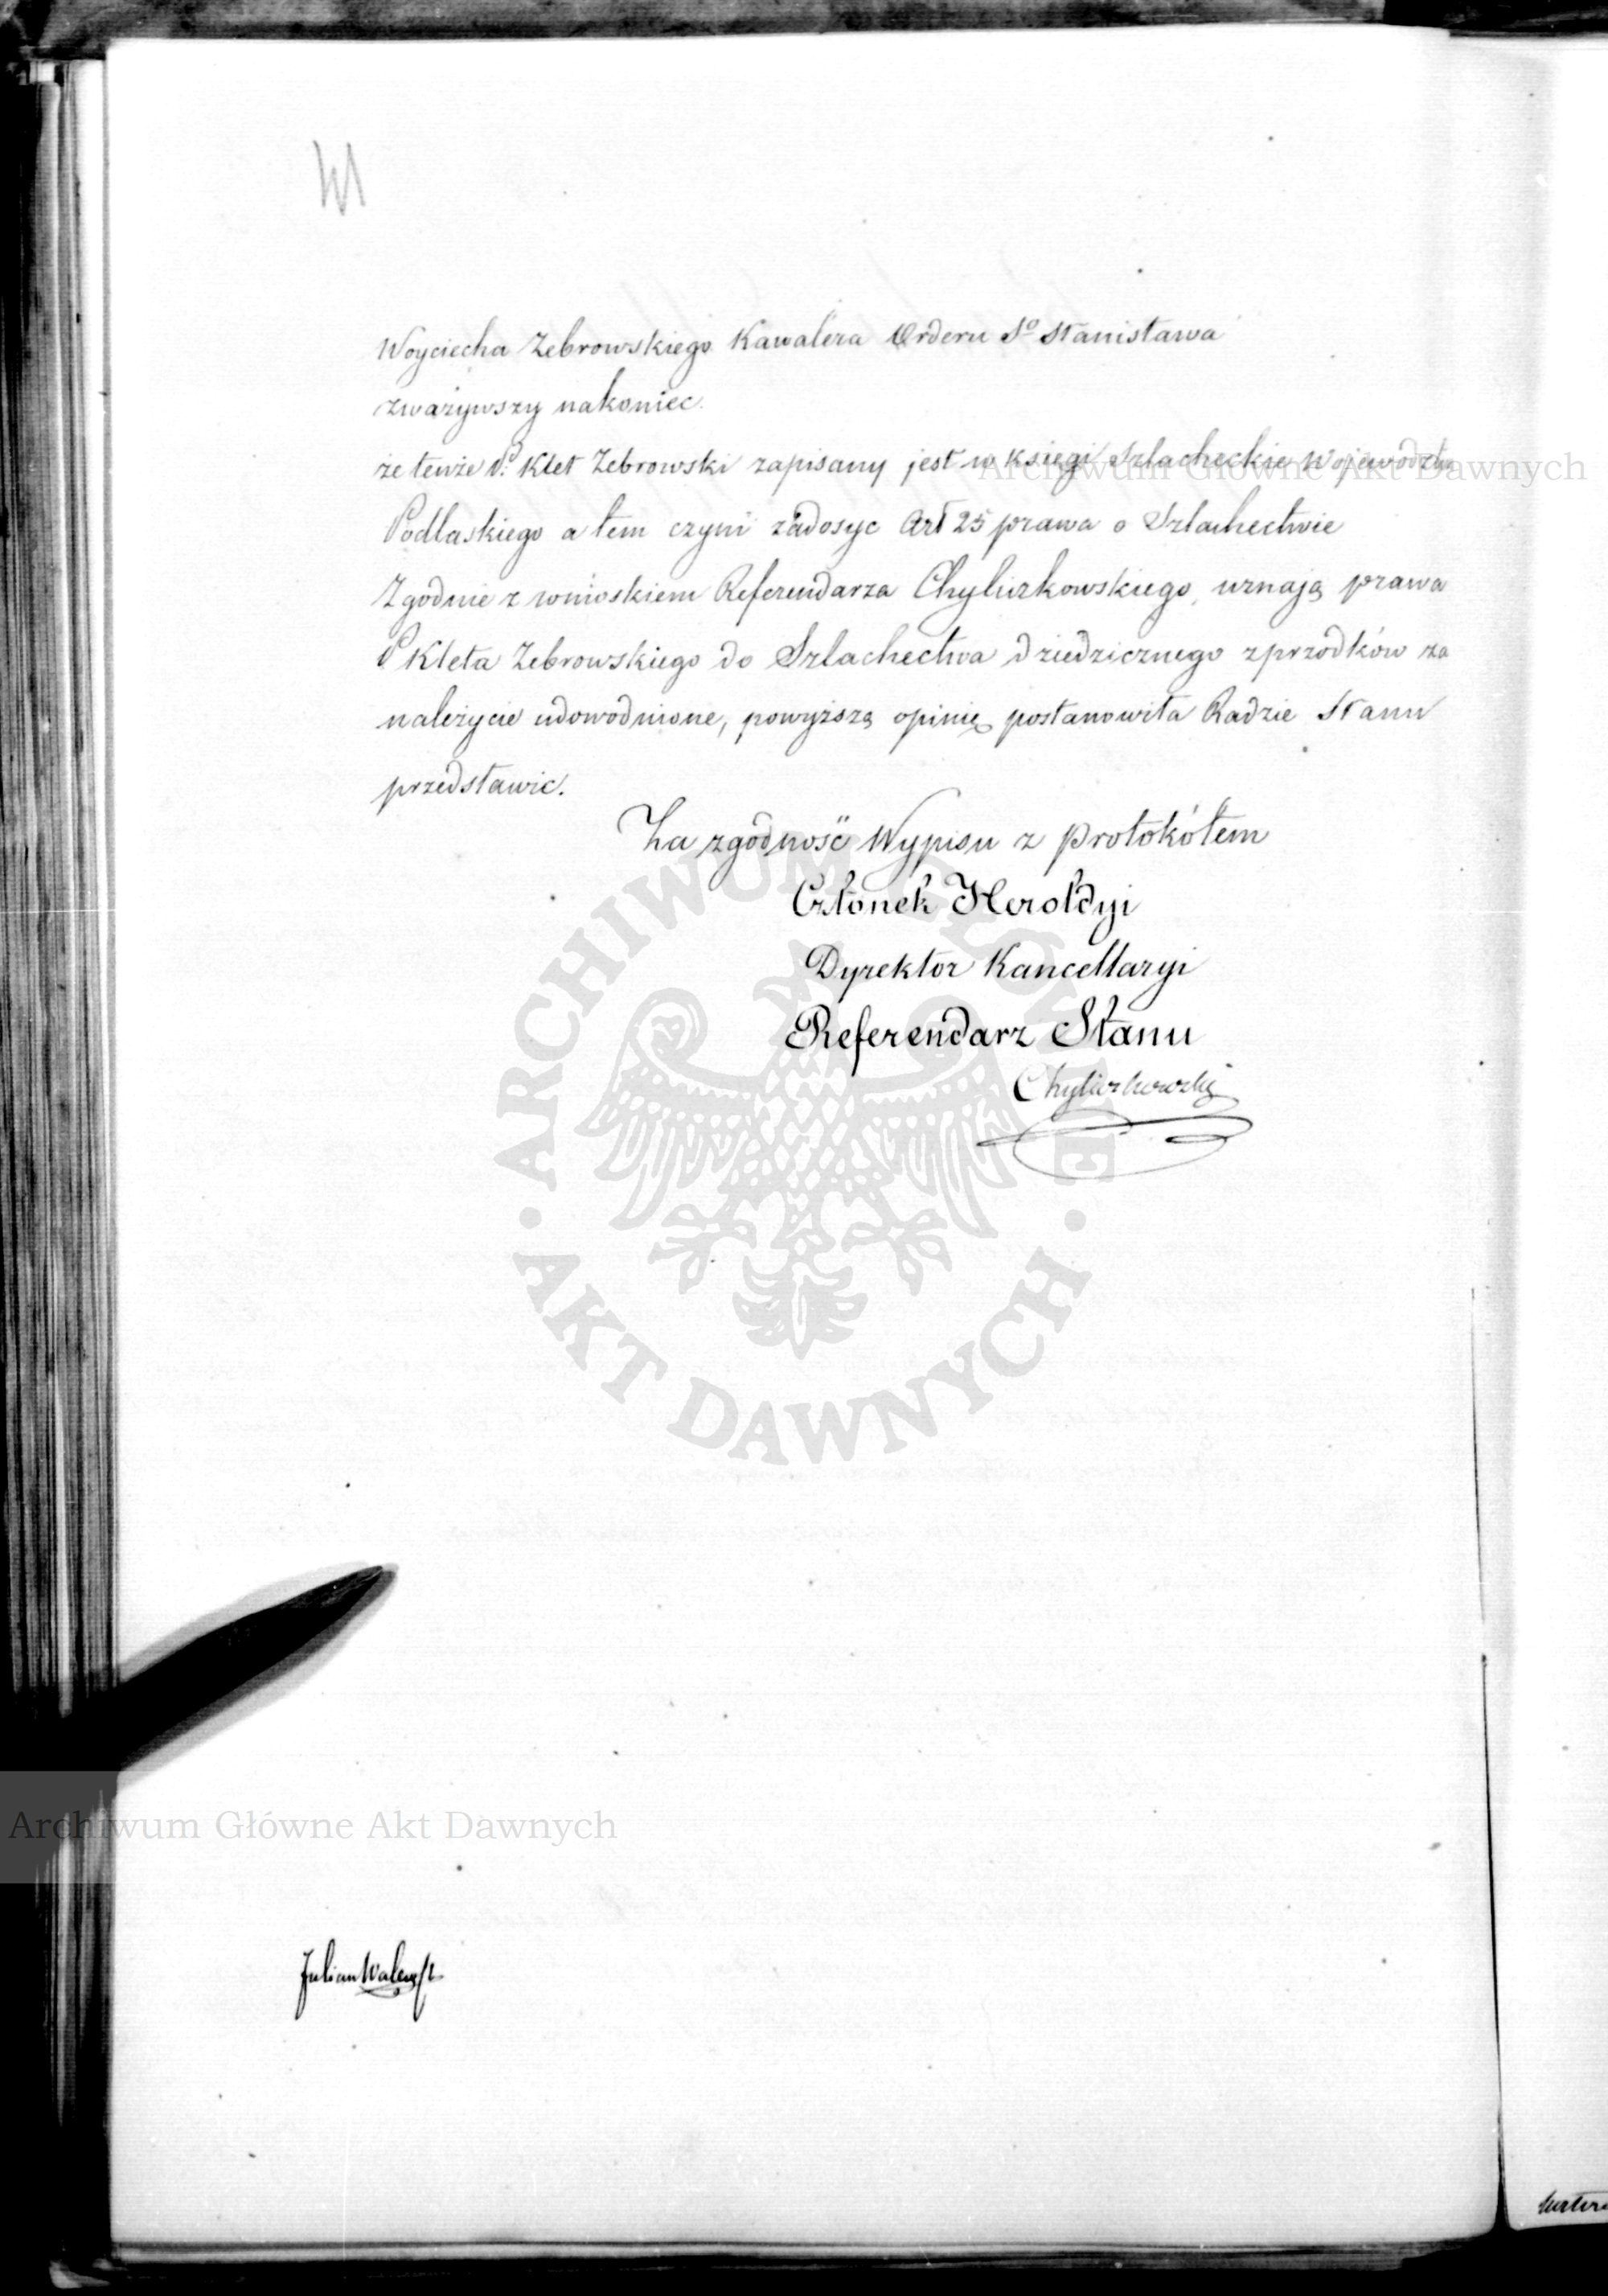 Woyciecha Zebrowskiego Kawalera Orderu So Stanisława
zważywszy nakoniec.
że tenże P. Klet Zebrowski zapisany jest w księgi Szlacheckie Województwa
Podlaskiego a tem czyni zadosyc Art 25 prawa o Szlachectwie
Zgodnie z wnioskiem Referendarza Chyliczkowskiego, uznają prawa
P Kleta Zebrowskiego do Szlachectwa dziedzicznego z przodków za
należycie udowodnione, powyższą opinię postanowiła Radzie Stanu
przedstawic.
Za zgodność Wypisu z Protokółem
Członek Heroldyi
Dyrektor Kancellaryi
Referendarz Stanu
Chyliczkowski
Julian
Archiwum Główne Akt Dawnych
Archiwum Główne Akt Dawnych
ARCHIWUM GŁÓWNE
· AKT DAWNYCH ·